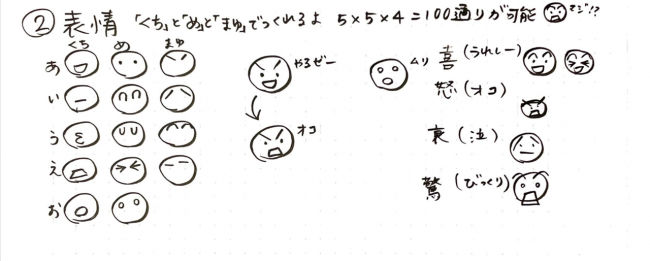 ② 表情 「くち」と「め」と「まゆ」でつくれるよ 5×5×4=100通りが可能 マジ!?
くち め まゆ
あ
い
う
え
お
やるぜー
オコ
ムリ
喜(うれしー)
怒(オコ)
哀(泣)
驚(びっくり)